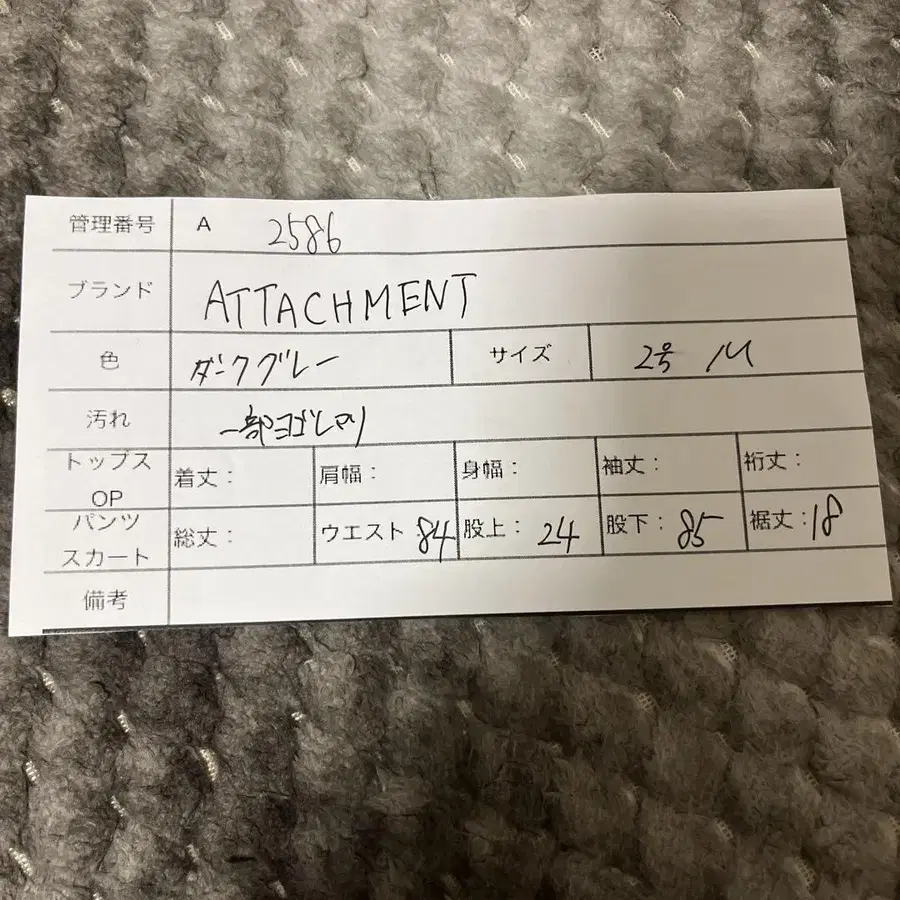 管理番号 A 2586
ブランド ATTACHMENT
色 ダークグレー サイズ 2号 M
汚れ 一部ヨゴレアリ
トップス OP 着丈: 肩幅: 身幅: 袖丈: 裄丈:
パンツ スカート 総丈: ウエスト:84 股上: 24 股下: 85 裾丈:18
備考